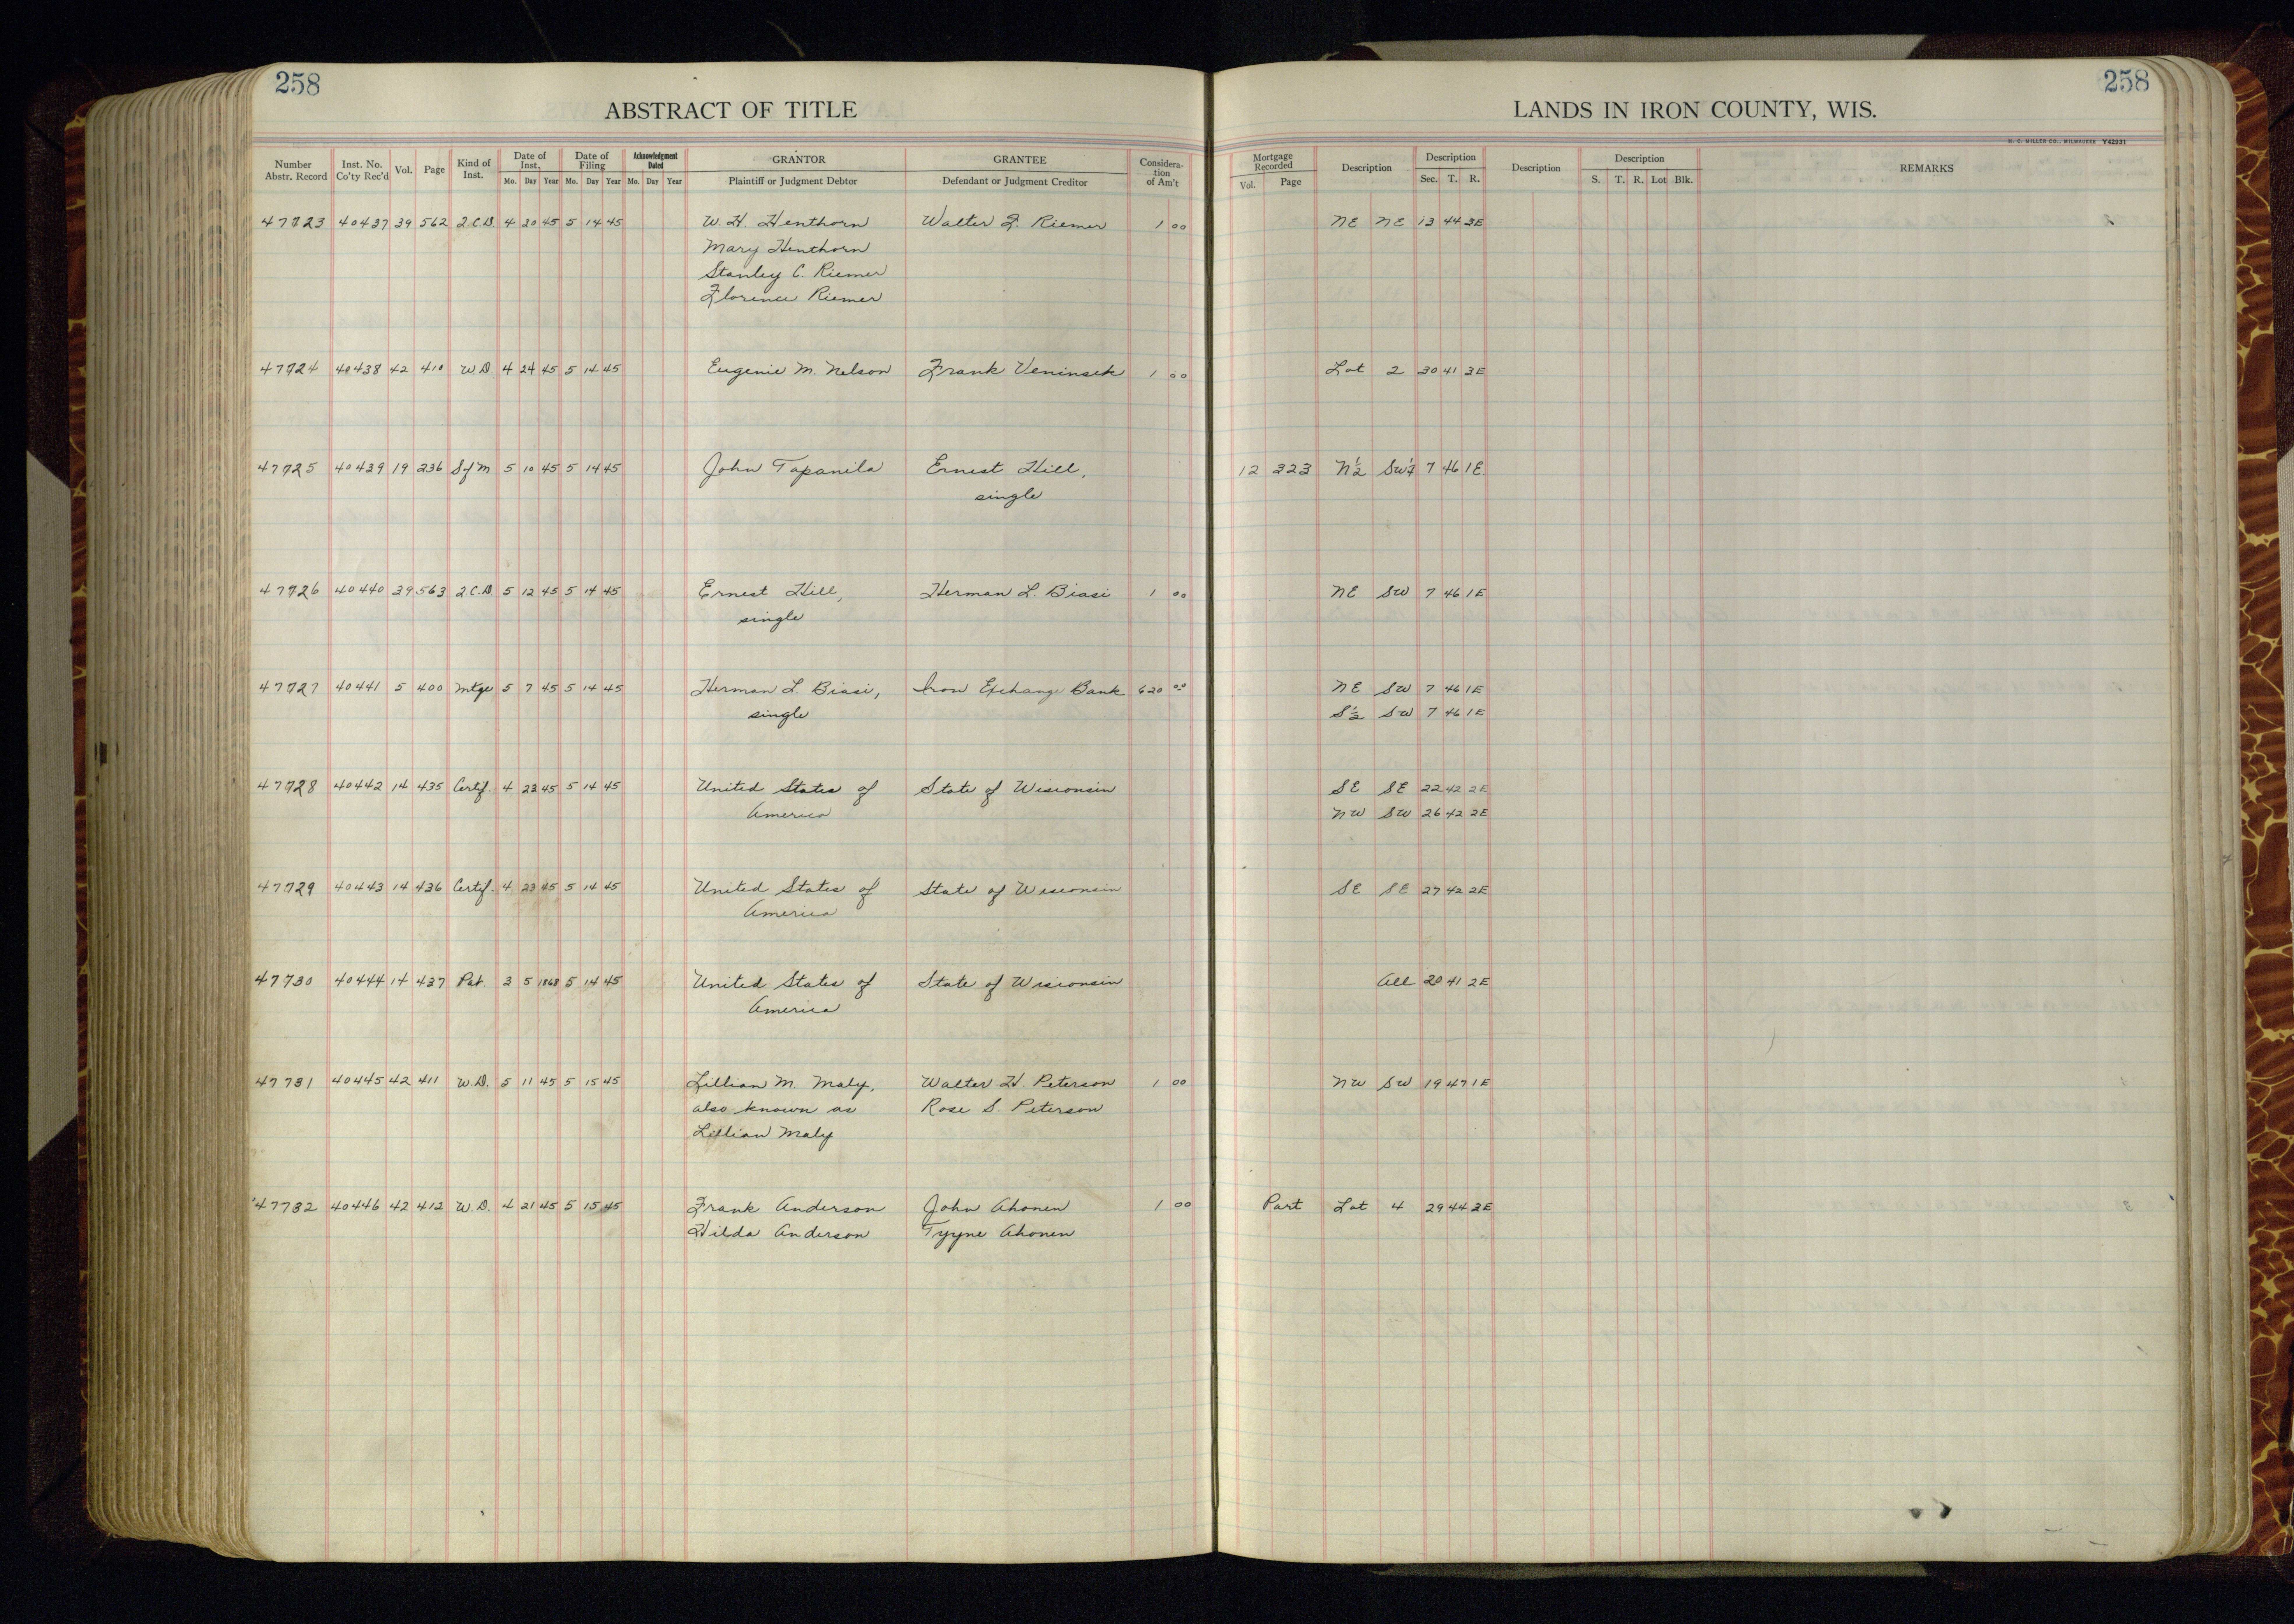 258
258
ABSTRACT OF TITLE
LANDS IN IRON COUNTY, WIS.
H. C. MILLER CO., MILWAUKEE Y42931
Number Abstr. Record Inst. No. Co'ty Rec'd Vol. Page Kind of Inst. Date of Inst. Mo. Day Year Date of Filing Mo. Day Year Acknowledgment Dated Mo. Day Year GRANTOR Plaintiff or Judgment Debtor GRANTEE Defendant or Judgment Creditor Considera-tion of Am't Mortgage Recorded Vol. Page Description Description Sec. T. R. Description Description S. T. R. Lot Blk. REMARKS
47723 40437 39 562 Q.C.D. 4 30 45 5 14 45 W. H. Henthorn Walter F. Riemer 1 00 NE NE 13 44 3E
Mary Henthorn
Stanley C. Riemer
Florence Riemer
47724 40438 42 410 W.D. 4 24 45 5 14 45 Eugenie M. Nelson Frank Veninsek 1 00 Lot 2 30 41 3E
47725 40439 19 236 S of M 5 10 45 5 14 45 John Tapanila Ernest Hill, 12 323 N½ SW¼ 7 46 1E
single
47726 40440 39 563 Q.C.D. 5 12 45 5 14 45 Ernest Hill, Herman L. Biasi 1 00 NE SW 7 46 1E
single
47727 40441 5 400 Mtge 5 7 45 5 14 45 Herman L. Biasi, Iron Exchange Bank 620 00 NE SW 7 46 1E
single S½ SW 7 46 1E
47728 40442 14 435 Certif. 4 23 45 5 14 45 United States of State of Wisconsin SE SE 22 42 2E
America NW SW 26 42 2E
47729 40443 14 436 Certif. 4 23 45 5 14 45 United States of State of Wisconsin SE SE 27 42 2E
America
47730 40444 14 437 Pat. 3 5 1868 5 14 45 United States of State of Wisconsin All 20 41 2E
America
47731 40445 42 411 W.D. 5 11 45 5 15 45 Lillian M. Maly, Walter H. Peterson 1 00 NW SW 19 47 1E
also known as Rose S. Peterson
Lillian Maly
47732 40446 42 412 W.D. 4 21 45 5 15 45 Frank Anderson John Ahonen 1 00 Part Lot 4 29 44 3E
Hilda Anderson Tyyne Ahonen